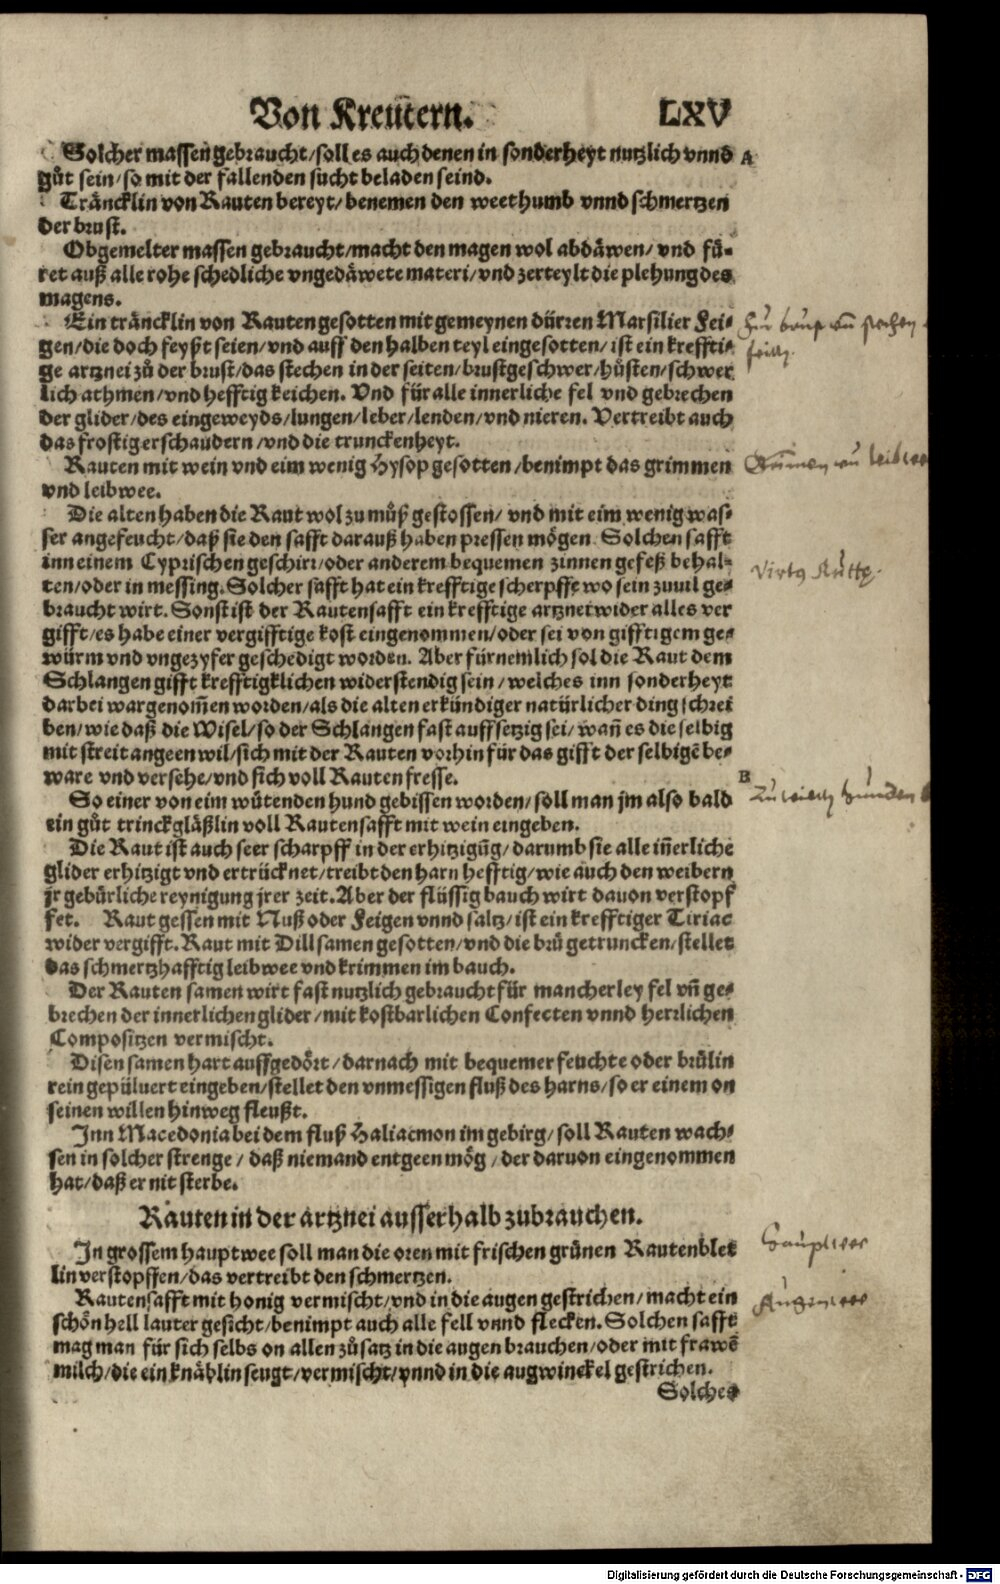 Von Kreütern. LXV
Solcher massen gebraucht/soll es auch denen in sonderheyt nutzlich vnnd A
gůt sein/so mit der fallenden sucht beladen seind.
Träncklin von Rauten bereyt/benemen den weethumb vnnd schmertzen
der brust.
Obgemelter massen gebraucht/macht den magen wol abdäwen/vnd fü-
ret auß alle rohe schedliche vngedäwete materi/vnd zerteylt die plehung des
magens.
Ein träncklin von Rauten gesotten mit gemeynen dürren Marsilier Fei-
gen/die doch feyßt seien/vnd auff den halben teyl eingesotten/ist ein kreffti-
ge artznei zů der brust/das stechen in der seiten/brustgeschwer/hůsten/schwer
lich athmen/vnd hefftig keichen. Vnd für alle innerliche fel vnd gebrechen
der glider/des eingeweyds/lungen/leber/lenden/vnd nieren. Vertreibt auch
das frostig erschaudern/vnd die trunckenheyt.
Rauten mit wein vnd eim wenig Hysop gesotten/benimpt das grimmen
vnd leibwee.
Die alten haben die Raut wol zu můß gestossen/vnd mit eim wenig was-
ser angefeucht/daß sie den safft darauß haben pressen mögen. Solchen safft
inn einem Cyprischen geschirr/oder anderem bequemen zinnen gefeß behal-
ten/oder in messing. Solcher safft hat ein krefftige scherpffe wo sein zuuil ge-
braucht wirt. Sonst ist der Rautensafft ein krefftige artznei wider alles ver
gifft/es habe einer vergifftige kost eingenommen/oder sei von gifftigem ge-
würm vnd vngezyfer geschedigt worden. Aber fürnemlich sol die Raut dem
Schlangen gifft krefftigklichen widerstendig sein/welches inn sonderheyt
darbei wargenom̃en worden/als die alten erkündiger natürlicher ding schrei
ben/wie daß die Wisel/so der Schlangen fast auffsetzig sei/wañ es die selbig
mit streit angeen wil/sich mit der Rauten vorhin für das gifft der selbigẽ be-
ware vnd versehe/vnd sich voll Rauten fresse.
B
So einer von eim wütenden hund gebissen worden/soll man jm also bald
ein gůt trinckgläßlin voll Rautensafft mit wein eingeben.
Die Raut ist auch seer scharpff in der erhitzigũg/darumb sie alle iñerliche
glider erhitzigt vnd ertrücknet/treibt den harn hefftig/wie auch den weibern
jr gebürliche reynigung jrer zeit. Aber der flüssig bauch wirt dauon verstopf
fet. Raut gessen mit Nuß oder Feigen vnnd saltz/ist ein krefftiger Tiriac
wider vergifft. Raut mit Dillsamen gesotten/vnd die brů getruncken/stellet
das schmertzhafftig leibwee vnd krimmen im bauch.
Der Rauten samen wirt fast nutzlich gebraucht für mancherley fel vñ ge-
brechen der innerlichen glider/mit kostbarlichen Confecten vnnd herrlichen
Compositzen vermischt.
Disen samen hart auffgedört/darnach mit bequemer feuchte oder brůlin
rein gepüluert eingeben/stellet den vnmessigen fluß des harns/so er einem on
seinen willen hinweg fleußt.
Inn Macedonia bei dem fluß Haliacmon im gebirg/soll Rauten wach-
sen in solcher strenge/daß niemand entgeen mög/der daruon eingenommen
hat/daß er nit sterbe.
Rauten in der artznei ausserhalb zubrauchen.
In grossem hauptwee soll man die oren mit frischen grünen Rautenblet
lin verstopffen/das vertreibt den schmertzen.
Rautensafft mit honig vermischt/vnd in die augen gestrichen/macht ein
schön hell lauter gesicht/benimpt auch alle fell vnnd flecken. Solchen safft
mag man für sich selbs on allen zůsatz in die augen brauchen/oder mit frawẽ
milch/die ein knäblin seugt/vermischt/vnnd in die augwinckel gestrichen.
Solches
Hauptwee
Augenwee
Digitalisierung gefördert durch die Deutsche Forschungsgemeinschaft - DFG